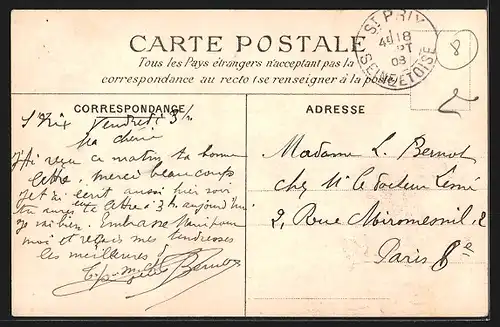 CARTE POSTALE
Tous les Pays étrangers n'acceptent pas la
correspondance au recto (se renseigner à la poste)
ST PRIX
4E 18
PT
08
SEINE ET OISE
8
CORRESPONDANCE
St Prix Vendredi 3h
Ma chérie
J'ai reçu ce matin ta bonne
lettre, merci beaucoup
je t'ai écrit aussi hier soir
tu auras eu lettre à 3h aujourd'hui
je vais bien. Embrasse pour
moi et reçois mes tendresses
les meilleures
ADRESSE
Madame L. Bernot
chez Mr le docteur
2, Rue Miromesnil, 2
Paris 8e